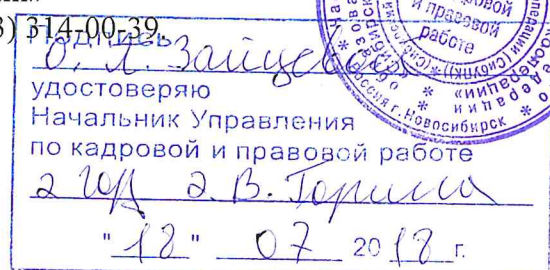 3) 314-00-39.
Подпись
О. Л. Зайцевой
удостоверяю
Начальник Управления
по кадровой и правовой работе
Э. В. Горина
"18" 07 2018 г.
кадровой
и правовой
работе
Россия г. Новосибирск